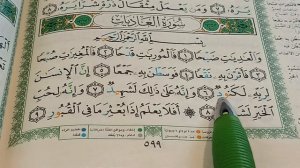 يَرَهُۥ ٧ وَمَن يَعْمَلْ مِثْقَالَ ذَرَّةٍ شَرًّا يَرَهُۥ ٨
سُورَةُ العَادِيَاتِ
بِسْمِ ٱللَّهِ ٱلرَّحْمَٰنِ ٱلرَّحِيمِ
وَٱلْعَٰدِيَٰتِ ضَبْحًا ١ فَٱلْمُورِيَٰتِ قَدْحًا ٢ فَٱلْمُغِيرَٰتِ صُبْحًا
٣ فَأَثَرْنَ بِهِۦ نَقْعًا ٤ فَوَسَطْنَ بِهِۦ جَمْعًا ٥ إِنَّ ٱلْإِنسَٰنَ
لِرَبِّهِۦ لَكَنُودٌ ٦ وَإِنَّهُۥ عَلَىٰ ذَٰلِكَ لَشَهِيدٌ ٧ وَإِنَّهُۥ لِحُبِّ
ٱلْخَيْرِ ٨ أَفَلَا يَعْلَمُ إِذَا بُعْثِرَ مَا فِى ٱلْقُبُورِ ٩
٥٩٩